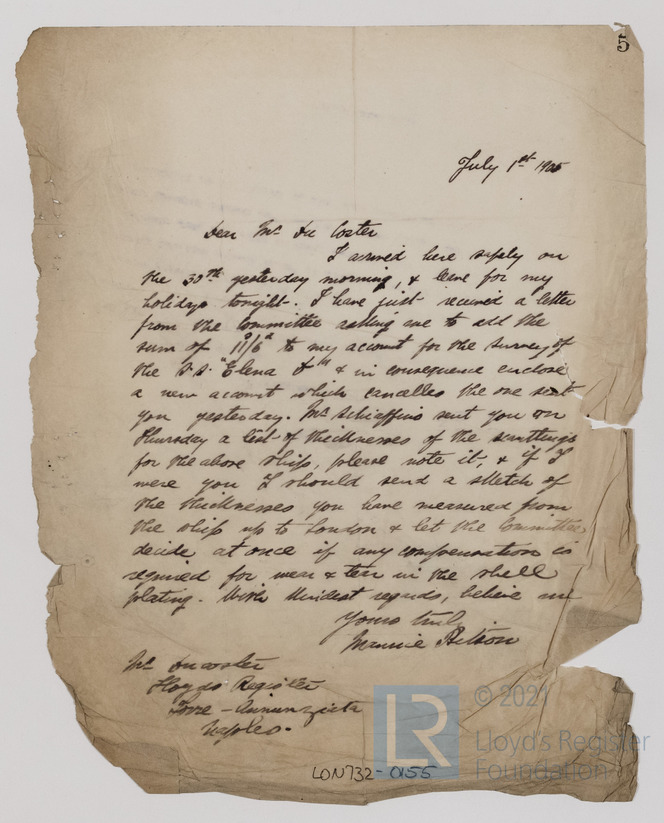 5
July 1st 1905
Dear Mr Du Coster
I arrived here safely on
the 30th yesterday morning, & leave for my
holidays tonight. I have just received a letter
from the Committee asking me to add the
sum of to my account for the survey of
the S.S. "Elena " & in consequence enclose
a new account which cancelles the one sent
you yesterday. Mr Schiaffino sent you on
Thursday a list of thicknesses of the scantlings
for the above ship, please note it, & if I
were you I should send a sketch of
the thicknesses you have measured from
the ship up to London & let the Committee
decide at once if any compensation is
required for wear & tear in the shell
plating. With kindest regards, believe me
Yours truly
Mr Ducoster
Lloyds Register
Torre-Annunziata
Naples.
LON732-0155
LR
© 2021
Lloyd's Register
Foundation